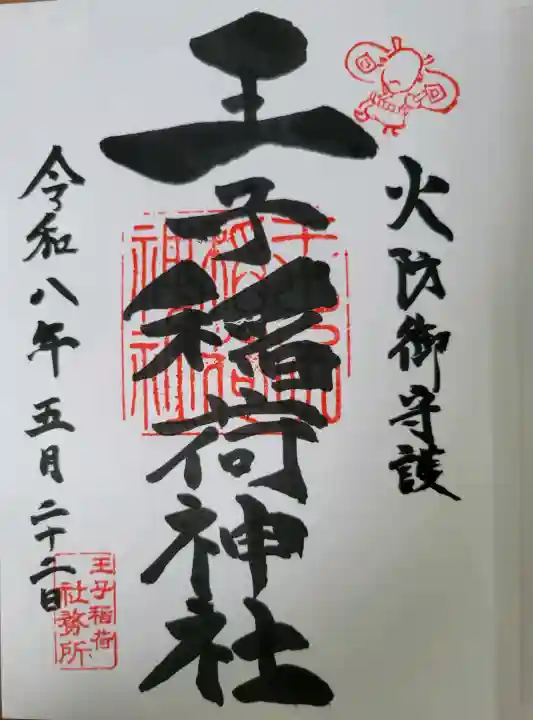 火防御守護
王子稲荷神社
令和八年五月二十二日
王子稲荷
社務所